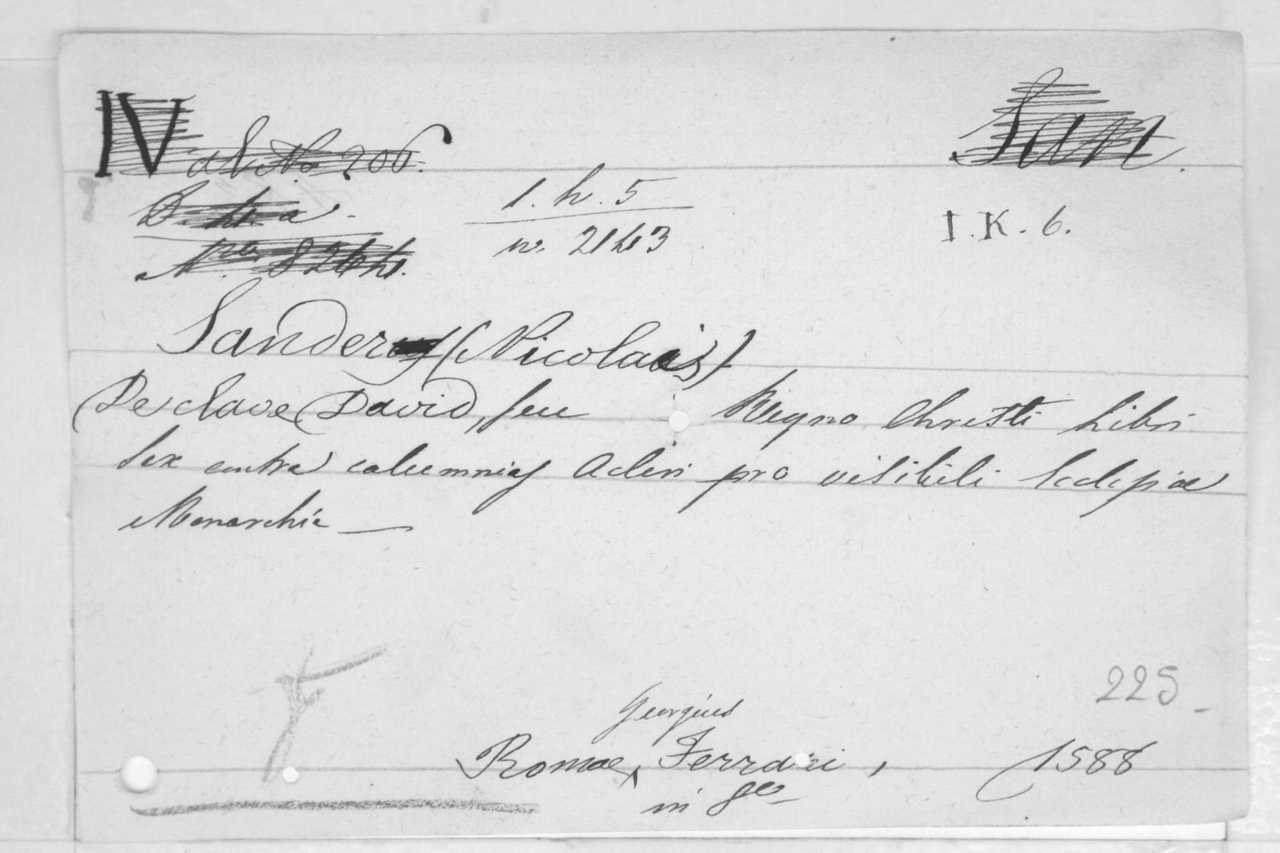 IV 206. San.
1. h. 5 I. K. 6.
n. 2143
Sander (Nicolais)
De clave David, seu Regno Christi Libri
sex contra calumnias Acleri pro visibili Ecclesiae
Monarchia —
225
Georgius
Romae, Ferrari, 1588
in 8º